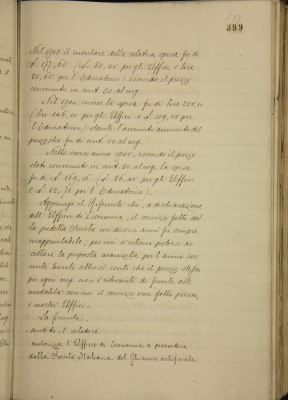 399
399
Nel 1903 il montare della relativa spesa fu di
L. 177,65 (L. 80, 45 per gli Uffici e lire
per l'Educatorio) secondo il prezzo
convenuto in cent. 30 al mq.
Nel 1904 invece la spesa fu di lire
(lire 146, 10 per gli Uffici e L. 109, 55 per
l'Educatorio) stante l'avvenuto aumento del
prezzo che fu di cent. 50 al mq.
Nello scorso anno 1905, secondo il prezzo
stato convenuto in cent. 30 al mq. la spesa
fu di L. 169, 16 (L. 86, 45 per gli Uffici
e L. 82, 71 per l'Educatorio).
Aggiunge il Riferente che, a dichiarazione
dell'Ufficio di Economia, il servizio fatto dal
la predetta Ditta in diversi anni fu sempre
inappuntabile; per cui si ritiene potersi ac-
cettare la proposta avanzata per l'anno cor-
rente tenuto altresì conto che il prezzo chiesto
per ogni mq. non è rilevante di fronte alle
modalità con cui il servizio vien fatto presso
i nostri Uffici.
La Giunta,
sentito il relatore
autorizza l'Ufficio di Economia a provvedere
dalla Società Italiana del Ghiaccio artificiale